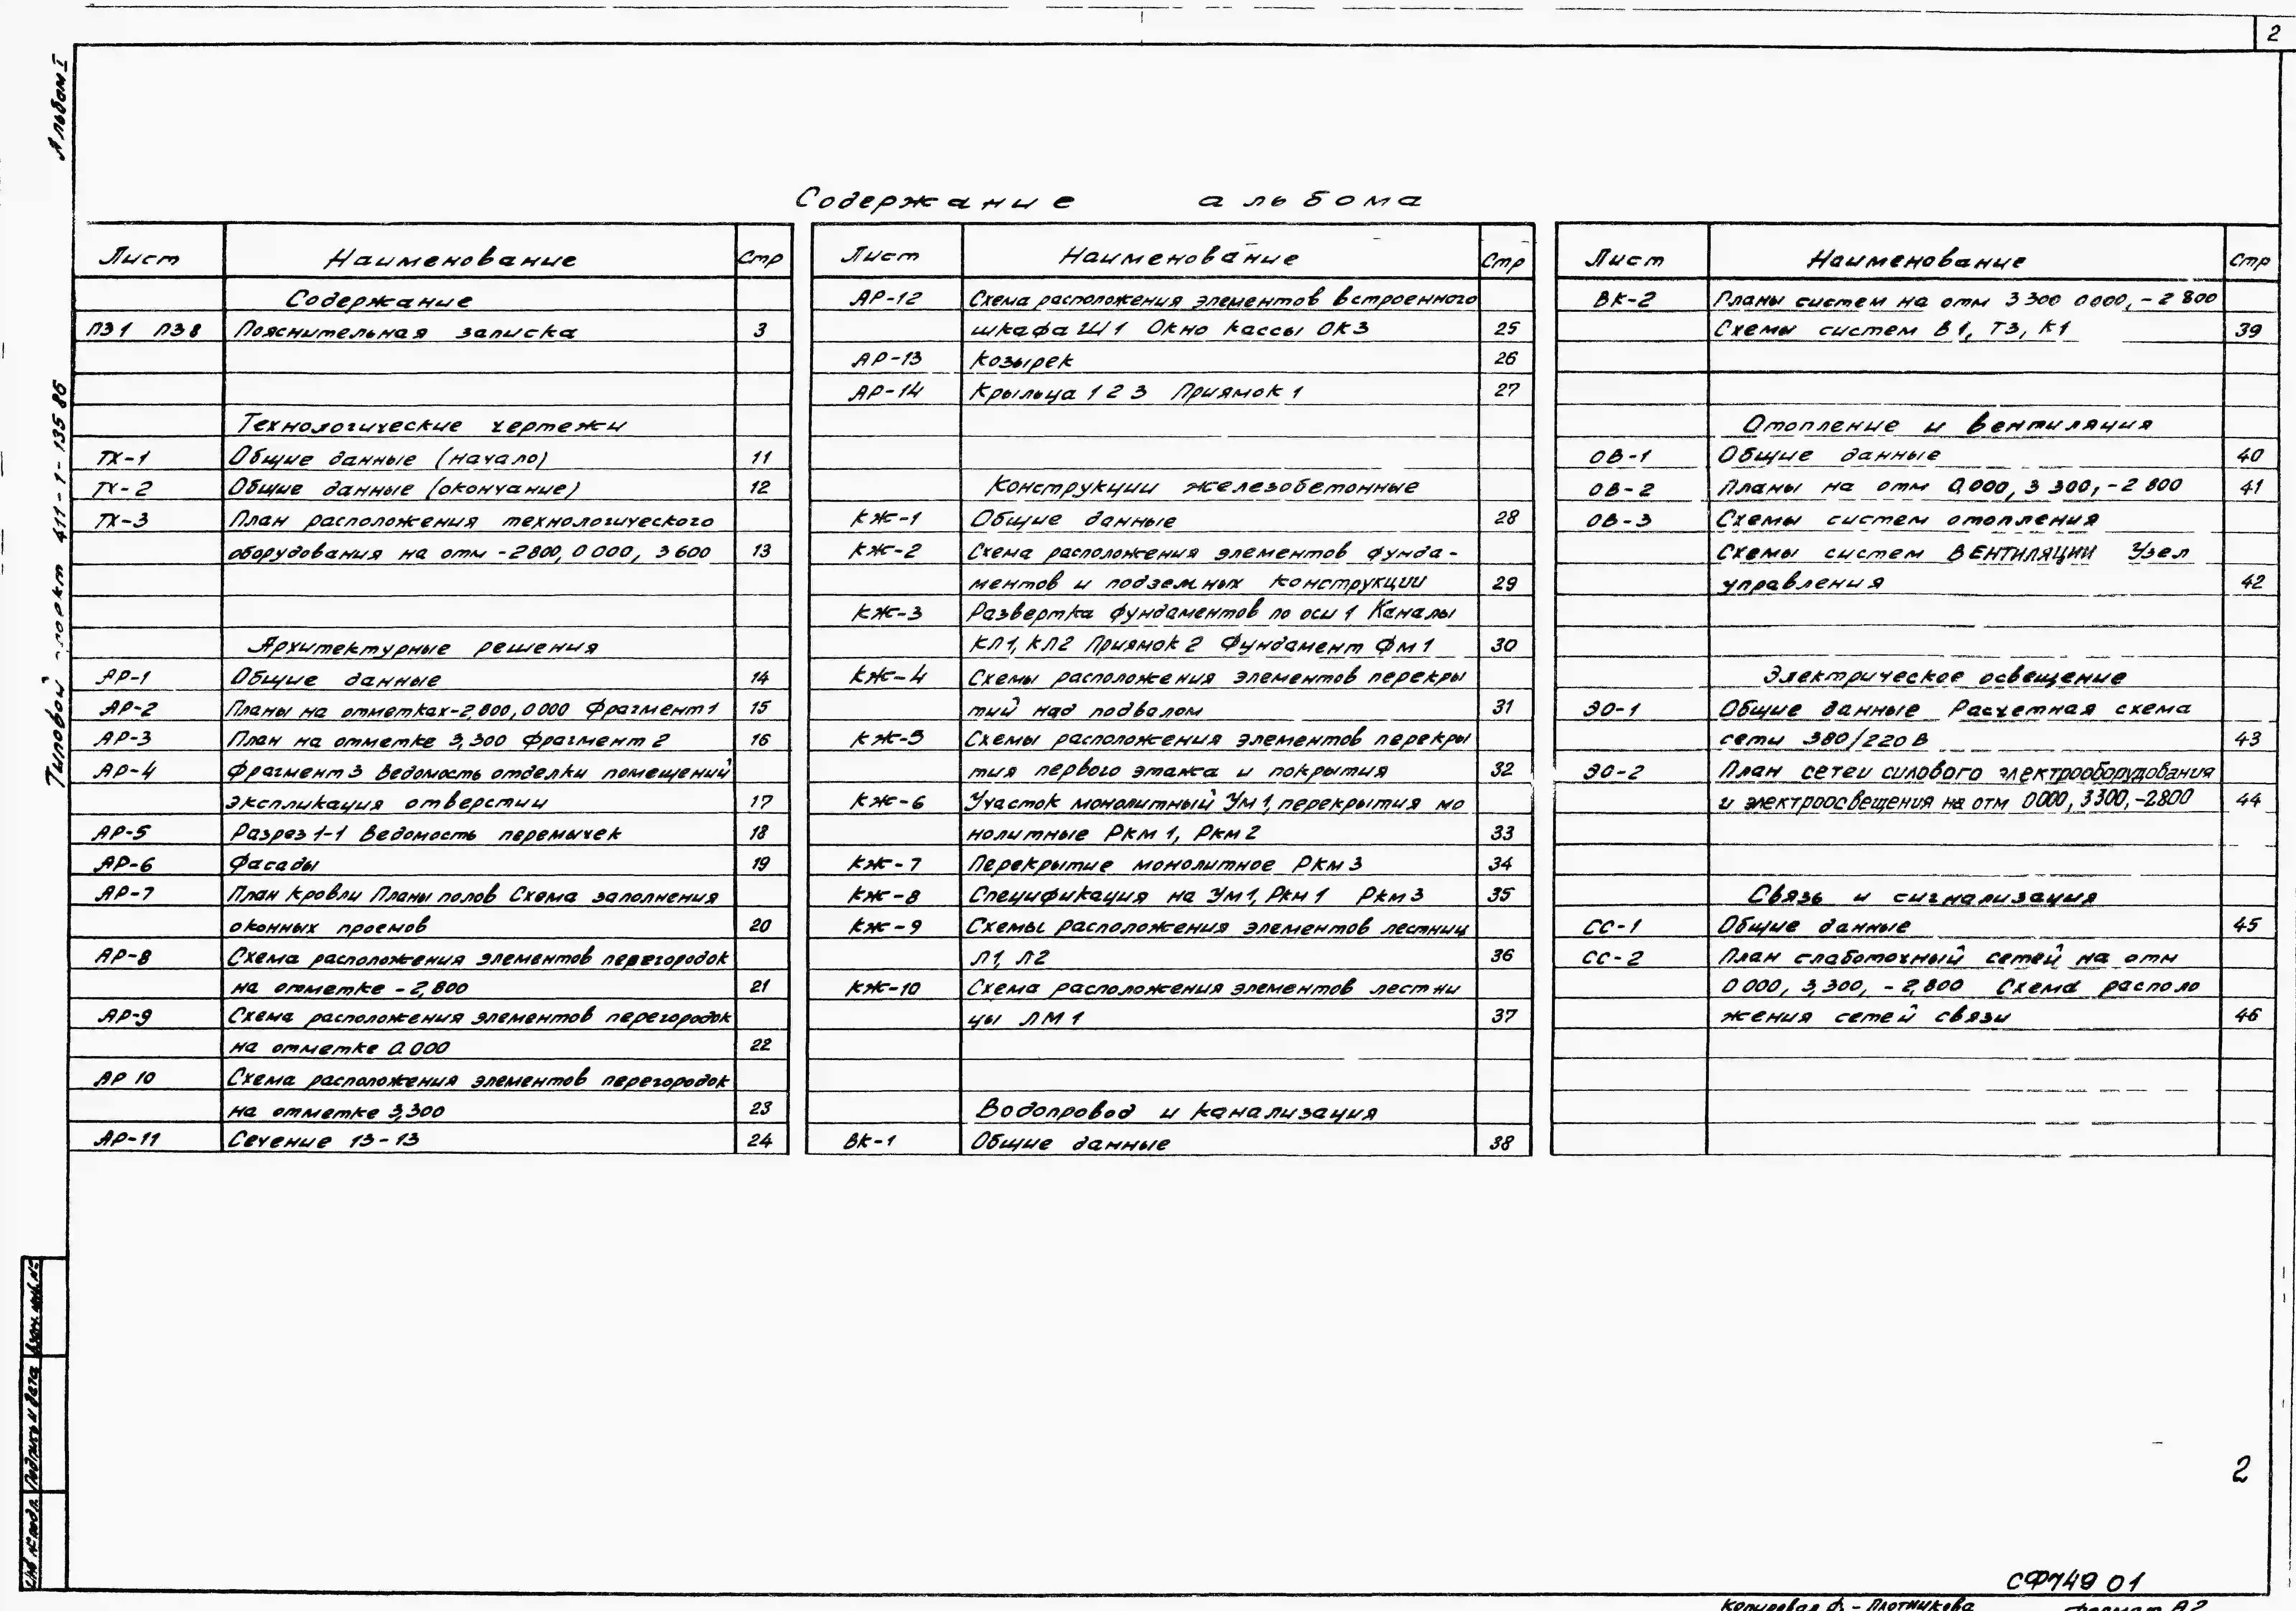 2
Альбом I
Типовой проект 411-1-135 86
Содержание альбома
Лист Наименование Стр
Содержание
ПЗ1 ПЗ8 Пояснительная записка 3
Технологические чертежи
ТХ-1 Общие данные (начало) 11
ТХ-2 Общие данные (окончание) 12
ТХ-3 План расположения технологического
оборудования на отм -2800, 0 000, 3 600 13
Архитектурные решения
АР-1 Общие данные 14
АР-2 Планы на отметках -2,800, 0 000 Фрагмент 1 15
АР-3 План на отметке 3,300 Фрагмент 2 16
АР-4 Фрагмент 3 Ведомость отделки помещений
Экспликация отверстии 17
АР-5 Разрез 1-1 Ведомость перемычек 18
АР-6 Фасады 19
АР-7 План кровли Планы полов Схема заполнения
оконных проемов 20
АР-8 Схема расположения элементов перегородок
на отметке -2,800 21
АР-9 Схема расположения элементов перегородок
на отметке 0.000 22
АР 10 Схема расположения элементов перегородок
на отметке 3,300 23
АР-11 Сечение 13-13 24
Лист Наименование Стр
АР-12 Схема расположения элементов встроенного
шкафа Ш1 Окно кассы ОК3 25
АР-13 Козырек 26
АР-14 Крыльца 1 2 3 Приямок 1 27
Конструкции железобетонные
КЖ-1 Общие данные 28
КЖ-2 Схема расположения элементов фунда-
ментов и подземных конструкции 29
КЖ-3 Развертка фундаментов по оси 1 Каналы
КЛ1, КЛ2 Приямок 2 Фундамент ФМ1 30
КЖ-4 Схемы расположения элементов перекры
тий над подвалом 31
КЖ-5 Схемы расположения элементов перекры
тия первого этажа и покрытия 32
КЖ-6 Участок монолитный УМ1, перекрытия мо
нолитные Ркм 1, Ркм 2 33
КЖ-7 Перекрытие монолитное Ркм 3 34
КЖ-8 Спецификация на Ум1, Ркм 1 Ркм 3 35
КЖ-9 Схемы расположения элементов лестниц
Л1, Л2 36
КЖ-10 Схема расположения элементов лестни
цы ЛМ 1 37
Водопровод и канализация
ВК-1 Общие данные 38
Лист Наименование Стр
ВК-2 Планы систем на отм 3 300 0 000, -2 800
Схемы систем В1, Т3, К1 39
Отопление и вентиляция
ОВ-1 Общие данные 40
ОВ-2 Планы на отм 0,000, 3 300, -2 800 41
ОВ-3 Схемы систем отопления
Схемы систем ВЕНТИЛЯЦИИ Узел
управления 42
Электрическое освещение
ЭО-1 Общие данные Расчетная схема
сети 380/220 В 43
ЭО-2 План сетеи силового электрооборудования
и электроосвещения на отм 0 000, 3 300, -2 800 44
Связь и сигнализация
СС-1 Общие данные 45
СС-2 План слаботочный сетей на отм
0 000, 3,300, -2,800 Схема располо
жения сетей связи 46
Инв № подл. Подпись и дата Взам. инв. №
2
СФ749 01
Копировал Ф - Плотникова Формат А2